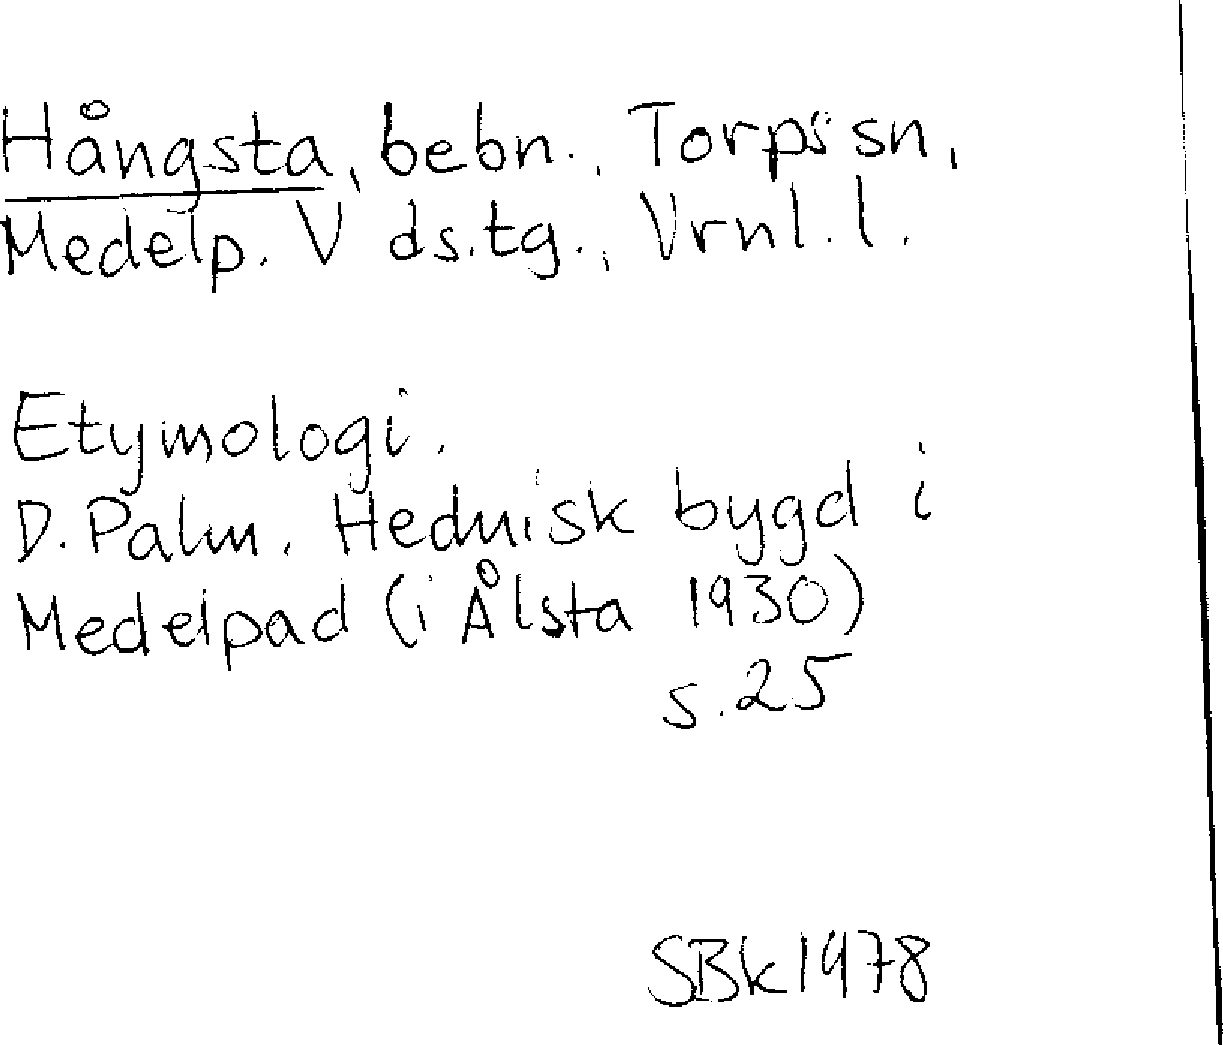 Hångsta, bebn., Torps sn,
Medelp. V ds.tg., Vrnl.l.
Etymologi.
D. Palm. Hednisk bygd i
Medelpad (i Ålsta 1930)
s. 25
SBk 1978